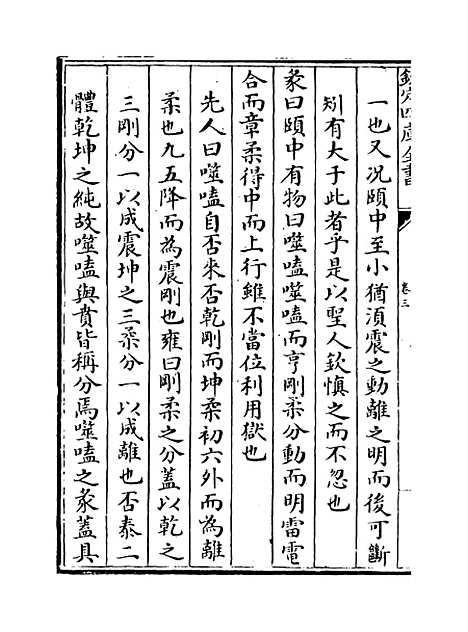 欽定四庫全書
卷三
一也又况頤中至小猶須震之動離之明而後可斷
矧有大于此者乎是以聖人欽慎之而不忽也
彖曰頤中有物曰噬嗑噬嗑而亨剛柔分動而明雷電
合而章柔得中而上行雖不當位利用獄也
先人曰噬嗑自否來否乾剛而坤柔初六外而為離
柔也九五降而為震剛也雍曰剛柔之分蓋以乾之
三剛分一以成震坤之三柔分一以成離也否泰二
體乾坤之純故噬嗑與賁皆稱分焉噬嗑之彖蓋具